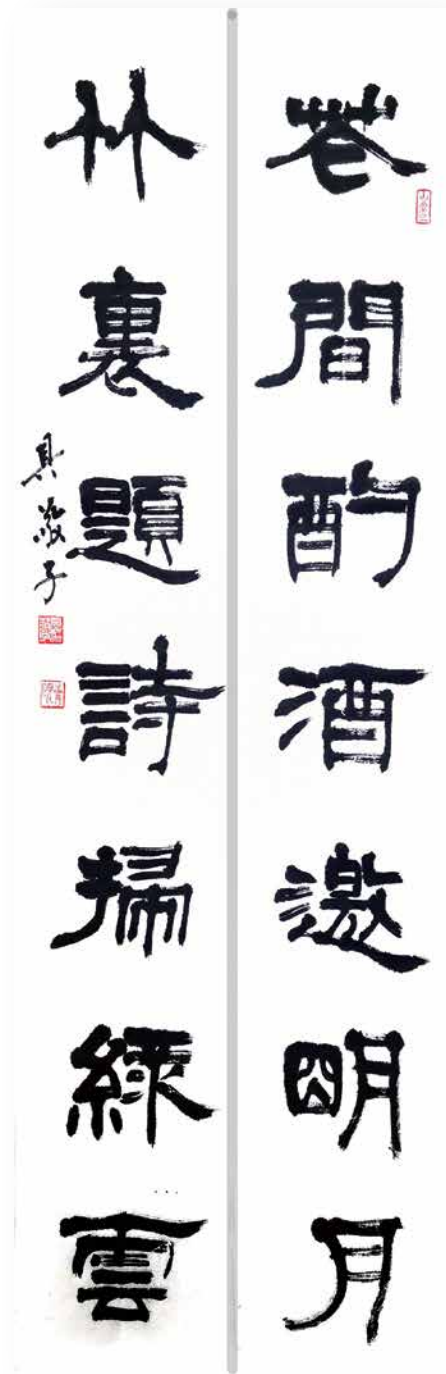 花間酌酒邀明月
竹裏題詩掃綠雲
具敬子